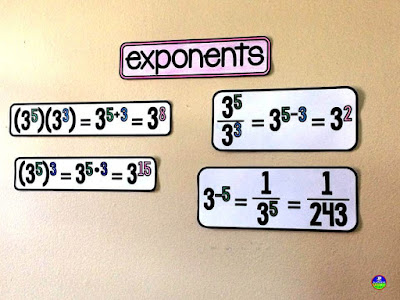 exponents
(3⁵)(3³) = 3⁵⁺³ = 3⁸
(3⁵)³ = 3⁵•³ = 3¹⁵
3⁵/3³ = 3⁵⁻³ = 3²
3⁻⁵ = 1/3⁵ = 1/243